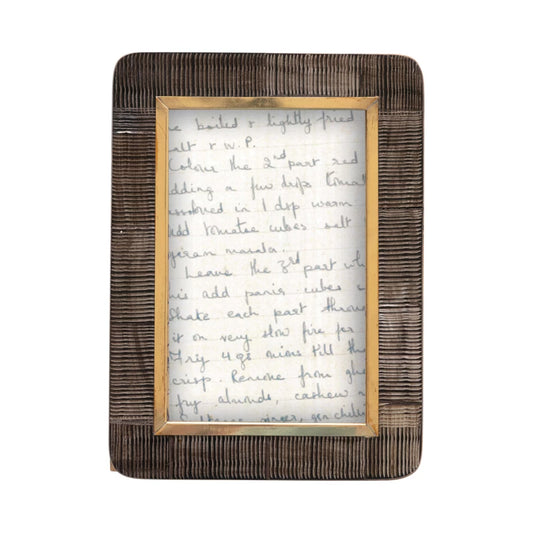 e boiled & lightly fried
alt & W.P.
Colour the 2nd part red
dding a few drops tomat
ssolved in 1 dsp warm
dd tomatoe cubes salt
garam masala.
Leave the 3rd part wh
his add panir cubes
Shake each part throu
it on very slow fire for
Fry 4 gs onions till th
crisp. Remove from gh
fry almonds, cashew n
ginger, grn chilli